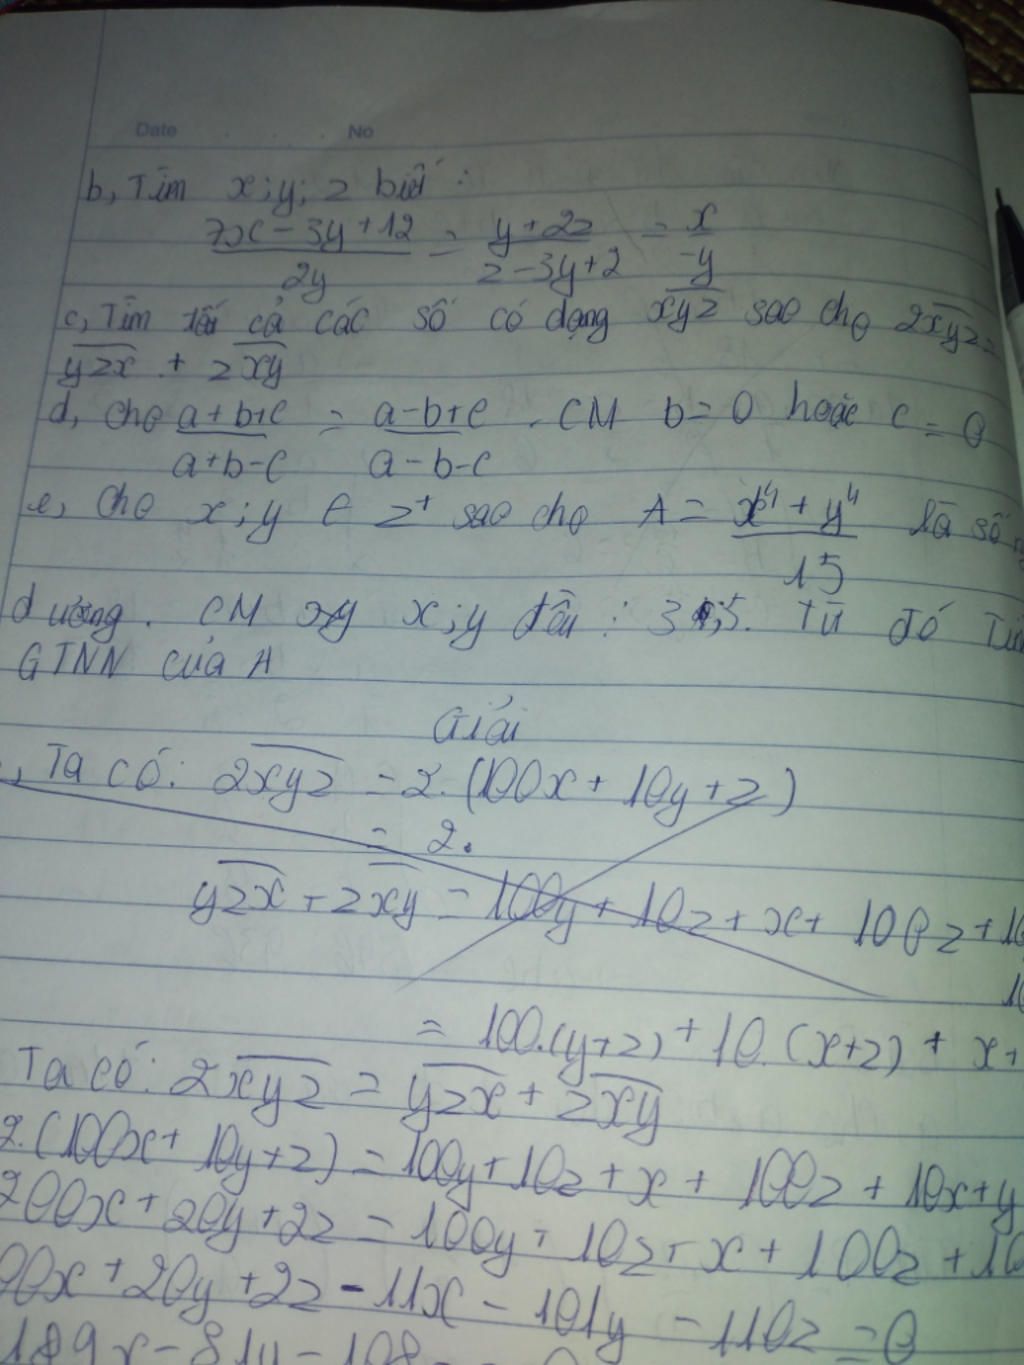 Date . . . No
b, Tìm x;y;z biết :
7x-3y+12/2y = y+2z/z-3y+2 = x/-y
c, Tìm tất cả các số có dạng xyz sao cho 2xyz =
yzx + zxy
d, cho a+b+c/a+b-c = a-b+c/a-b-c . CM b=0 hoặc c=0
e, cho x;y ∈ z⁺ sao cho A = x⁴+y⁴/15 là số
dương. CM x;y đều : 3;5. Từ đó
GTNN của A
Giải
, Ta có: 2xyz = 2.(100x+10y+z)
= 2.
yzx + zxy = 100y+10z+x+100z+
= 100.(y+z)+10.(x+z)+x+
Ta có: 2xyz = yzx + zxy
2.(100x+10y+z) = 100y+10z+x+100z+10x+y
200x+20y+2z = 100y+10z+x+100z+
00x+20y+2z-11x-101y-110z=0
189x-81y-108